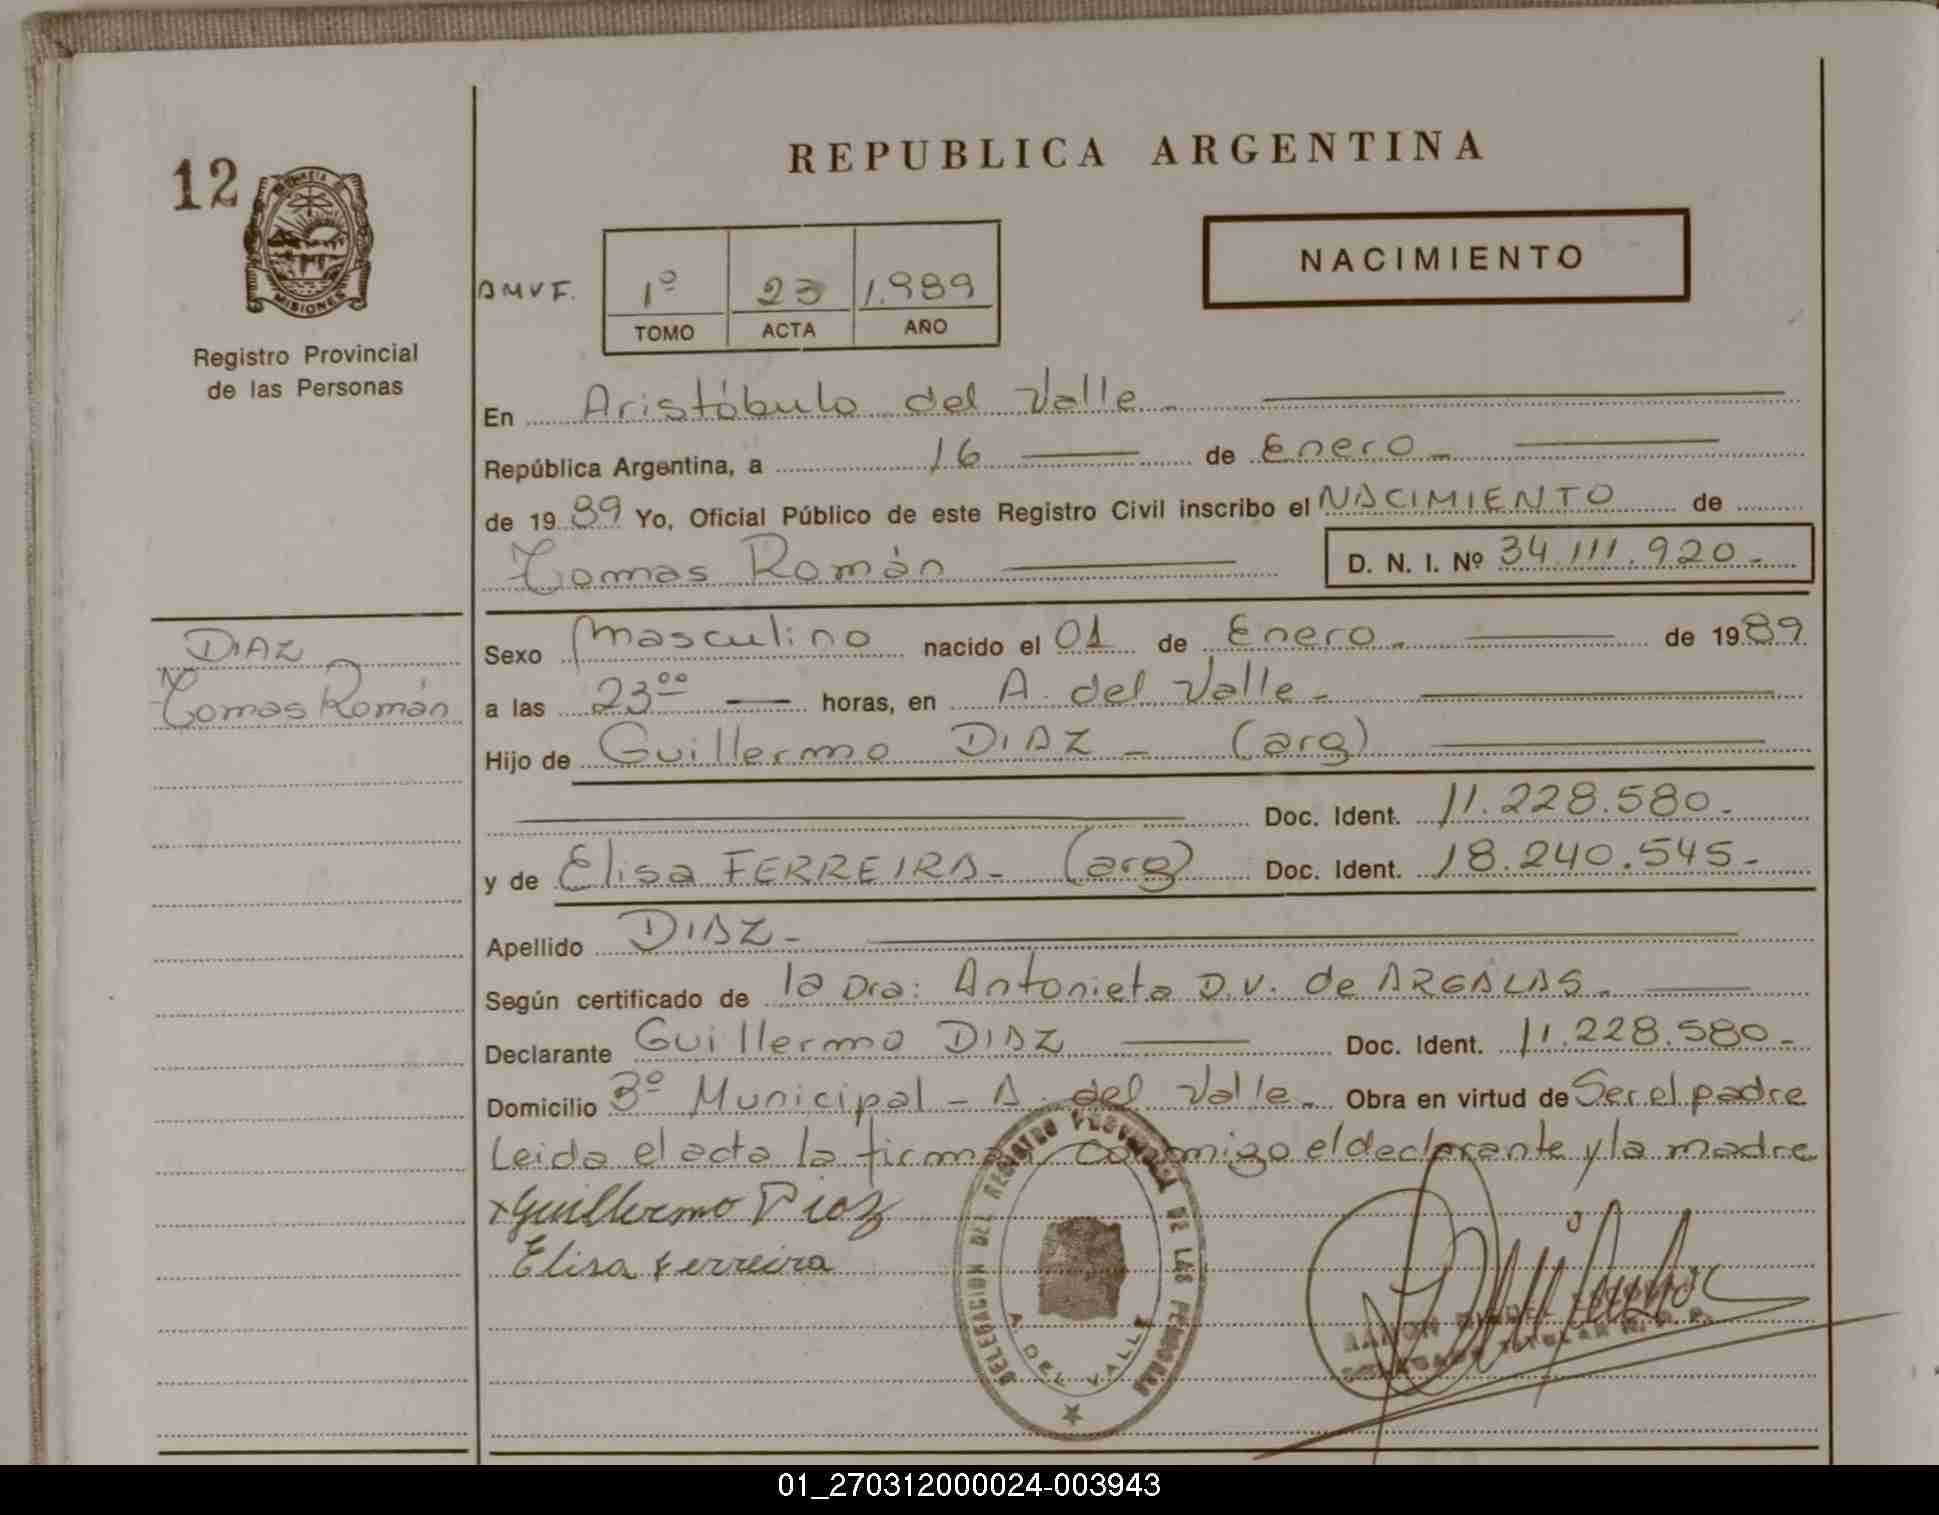 REPUBLICA ARGENTINA
12
MISIONES
Registro Provincial
de las Personas
NACIMIENTO
AMVF.
1º 23 1.989
TOMO ACTA AÑO
En Aristóbulo del Valle -
República Argentina, a 16 de Enero -
de 1989 Yo, Oficial Público de este Registro Civil inscribo el NACIMIENTO de
Tomas Román D. N. I. Nº 34.111.920-
DIAZ
Tomas Román
Sexo Masculino nacido el 01 de Enero - de 1989
a las 23ºº horas, en A. del Valle -
Hijo de Guillermo DIAZ - (arg)
Doc. Ident. 11.228.580-
y de Elisa FERREIRA - (arg) Doc. Ident. 18.240.545-
Apellido DIAZ -
Según certificado de la Dra: Antonieta D.V. de ARGALAS -
Declarante Guillermo DIAZ Doc. Ident. 11.228.580-
Domicilio Bº Municipal - A. del Valle - Obra en virtud de Ser el padre
Leida el acta la firman conmigo el declarante y la madre
x Guillermo Diaz
Elisa Ferreira
DELEGACION DEL REGISTRO PROVINCIAL DE LAS PERSONAS
A. DEL VALLE
RAMON MIGUEL
DELEGADO TITULAR R. P. P.
01_270312000024-003943